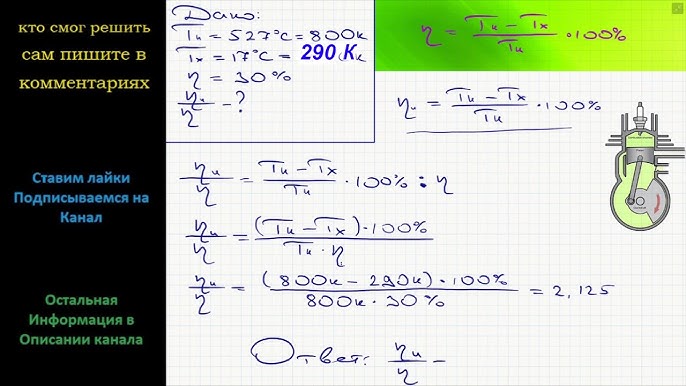 кто смог решить
сам пишите в
комментариях
Ставим лайки
Подписываемся на
Канал
Остальная
Информация в
Описании канала
Дано:
Tн = 527°C = 800К
Tх = 17°C = 290 К
η = 30%
ηн/η - ?
η = (Tн - Tх)/Tн · 100%
ηн = (Tн - Tх)/Tн · 100%
ηн/η = (Tн - Tх)/Tн · 100% : η
ηн/η = ((Tн - Tх) · 100%)/(Tн · η)
ηн/η = ((800К - 290К) · 100%)/(800К · 30%) = 2,125
Ответ: ηн/η =